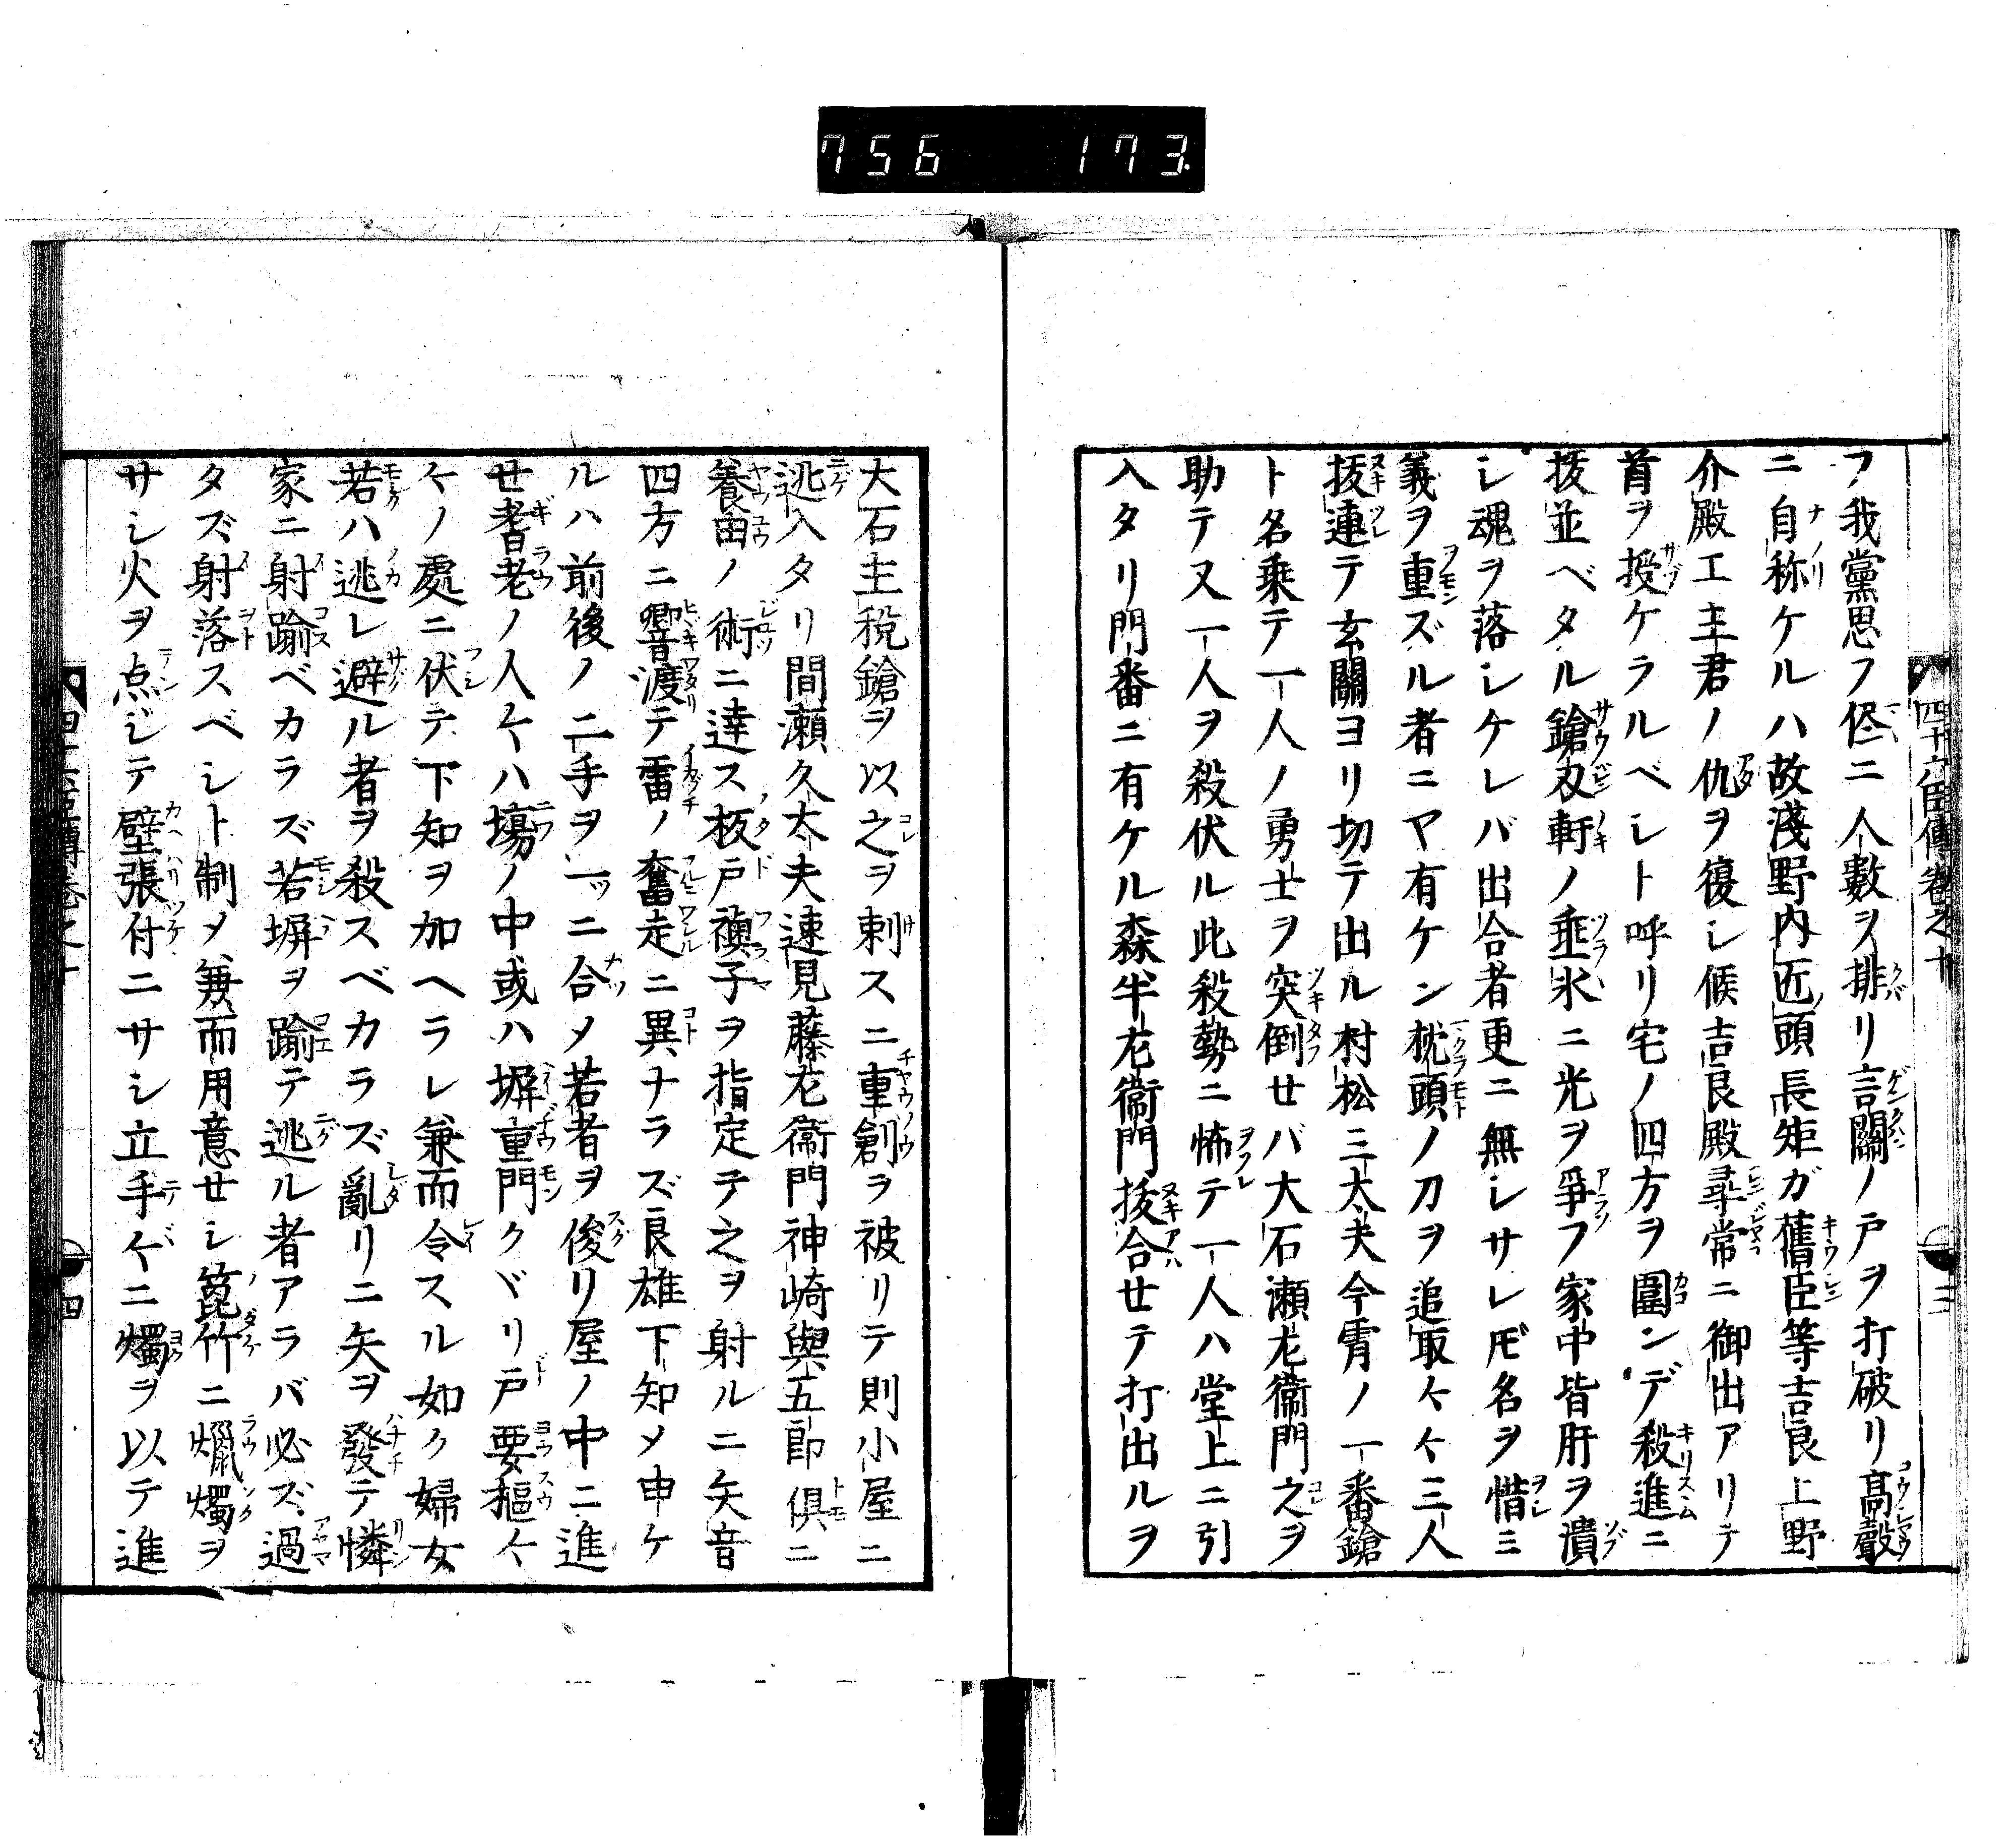 756 173
フ我黨思フ侭ニ人數ヲ排リ言關ノ戸ヲ打破リ高聲
ニ自称ケルハ故淺野内匠頭長矩ガ舊臣等吉良上野
介殿エ主君ノ仇ヲ復シ候吉良殿尋常ニ御出アリテ
首ヲ授ケラルベシト呼リ宅ノ四方ヲ圍ンデ殺進ニ
拔並ベタル鎗刄軒ノ垂氷ニ光ヲ爭フ家中皆肝ヲ潰
シ魂ヲ落シケレバ出合者更ニ無シサレ𪜈名ヲ惜ミ
義ヲ重ズル者ニヤ有ケン枕頭ノ刀ヲ追取〱三人
拔連テ玄關ヨリ切テ出ル村松三太夫今宵ノ一番鎗
ト名乗テ一人ノ勇士ヲ突倒セバ大石瀬左衞門之ヲ
助テ又一人ヲ殺伏ル此殺勢ニ怖テ一人ハ堂上ニ引
入タリ門番ニ有ケル森半左衞門拔合セテ打出ルヲ
四十六臣傳卷之十 三
大石主税鎗ヲ以之ヲ刺スニ重創ヲ被リテ則小屋ニ
逃入タリ間瀬久太夫速見藤左衞門神崎與五郎俱ニ
養由ノ術ニ達ス板戸襖子ヲ指定テ之ヲ射ルニ矢音
四方ニ響渡テ雷ノ奮走ニ異ナラズ良雄下知メ申ケ
ルハ前後ノ二手ヲ一ッニ合メ若者ヲ俊リ屋ノ中ニ進
セ耆老ノ人〱ハ塲ノ中或ハ塀重門クヾリ戸要樞〱
〱ノ處ニ伏テ下知ヲ加ヘラレ兼而令スル如ク婦女
若ハ逃レ避ル者ヲ殺スベカラズ亂リニ矢ヲ發テ憐
家ニ射踰ベカラズ若塀ヲ踰テ逃ル者アラバ必ズ過
タズ射落スベシト制メ兼而用意セシ箆竹ニ爉燭ヲ
サシ火ヲ点ジテ壁張付ニサシ立手ゲニ燭ヲ以テ進
四十六臣傳卷之十 四